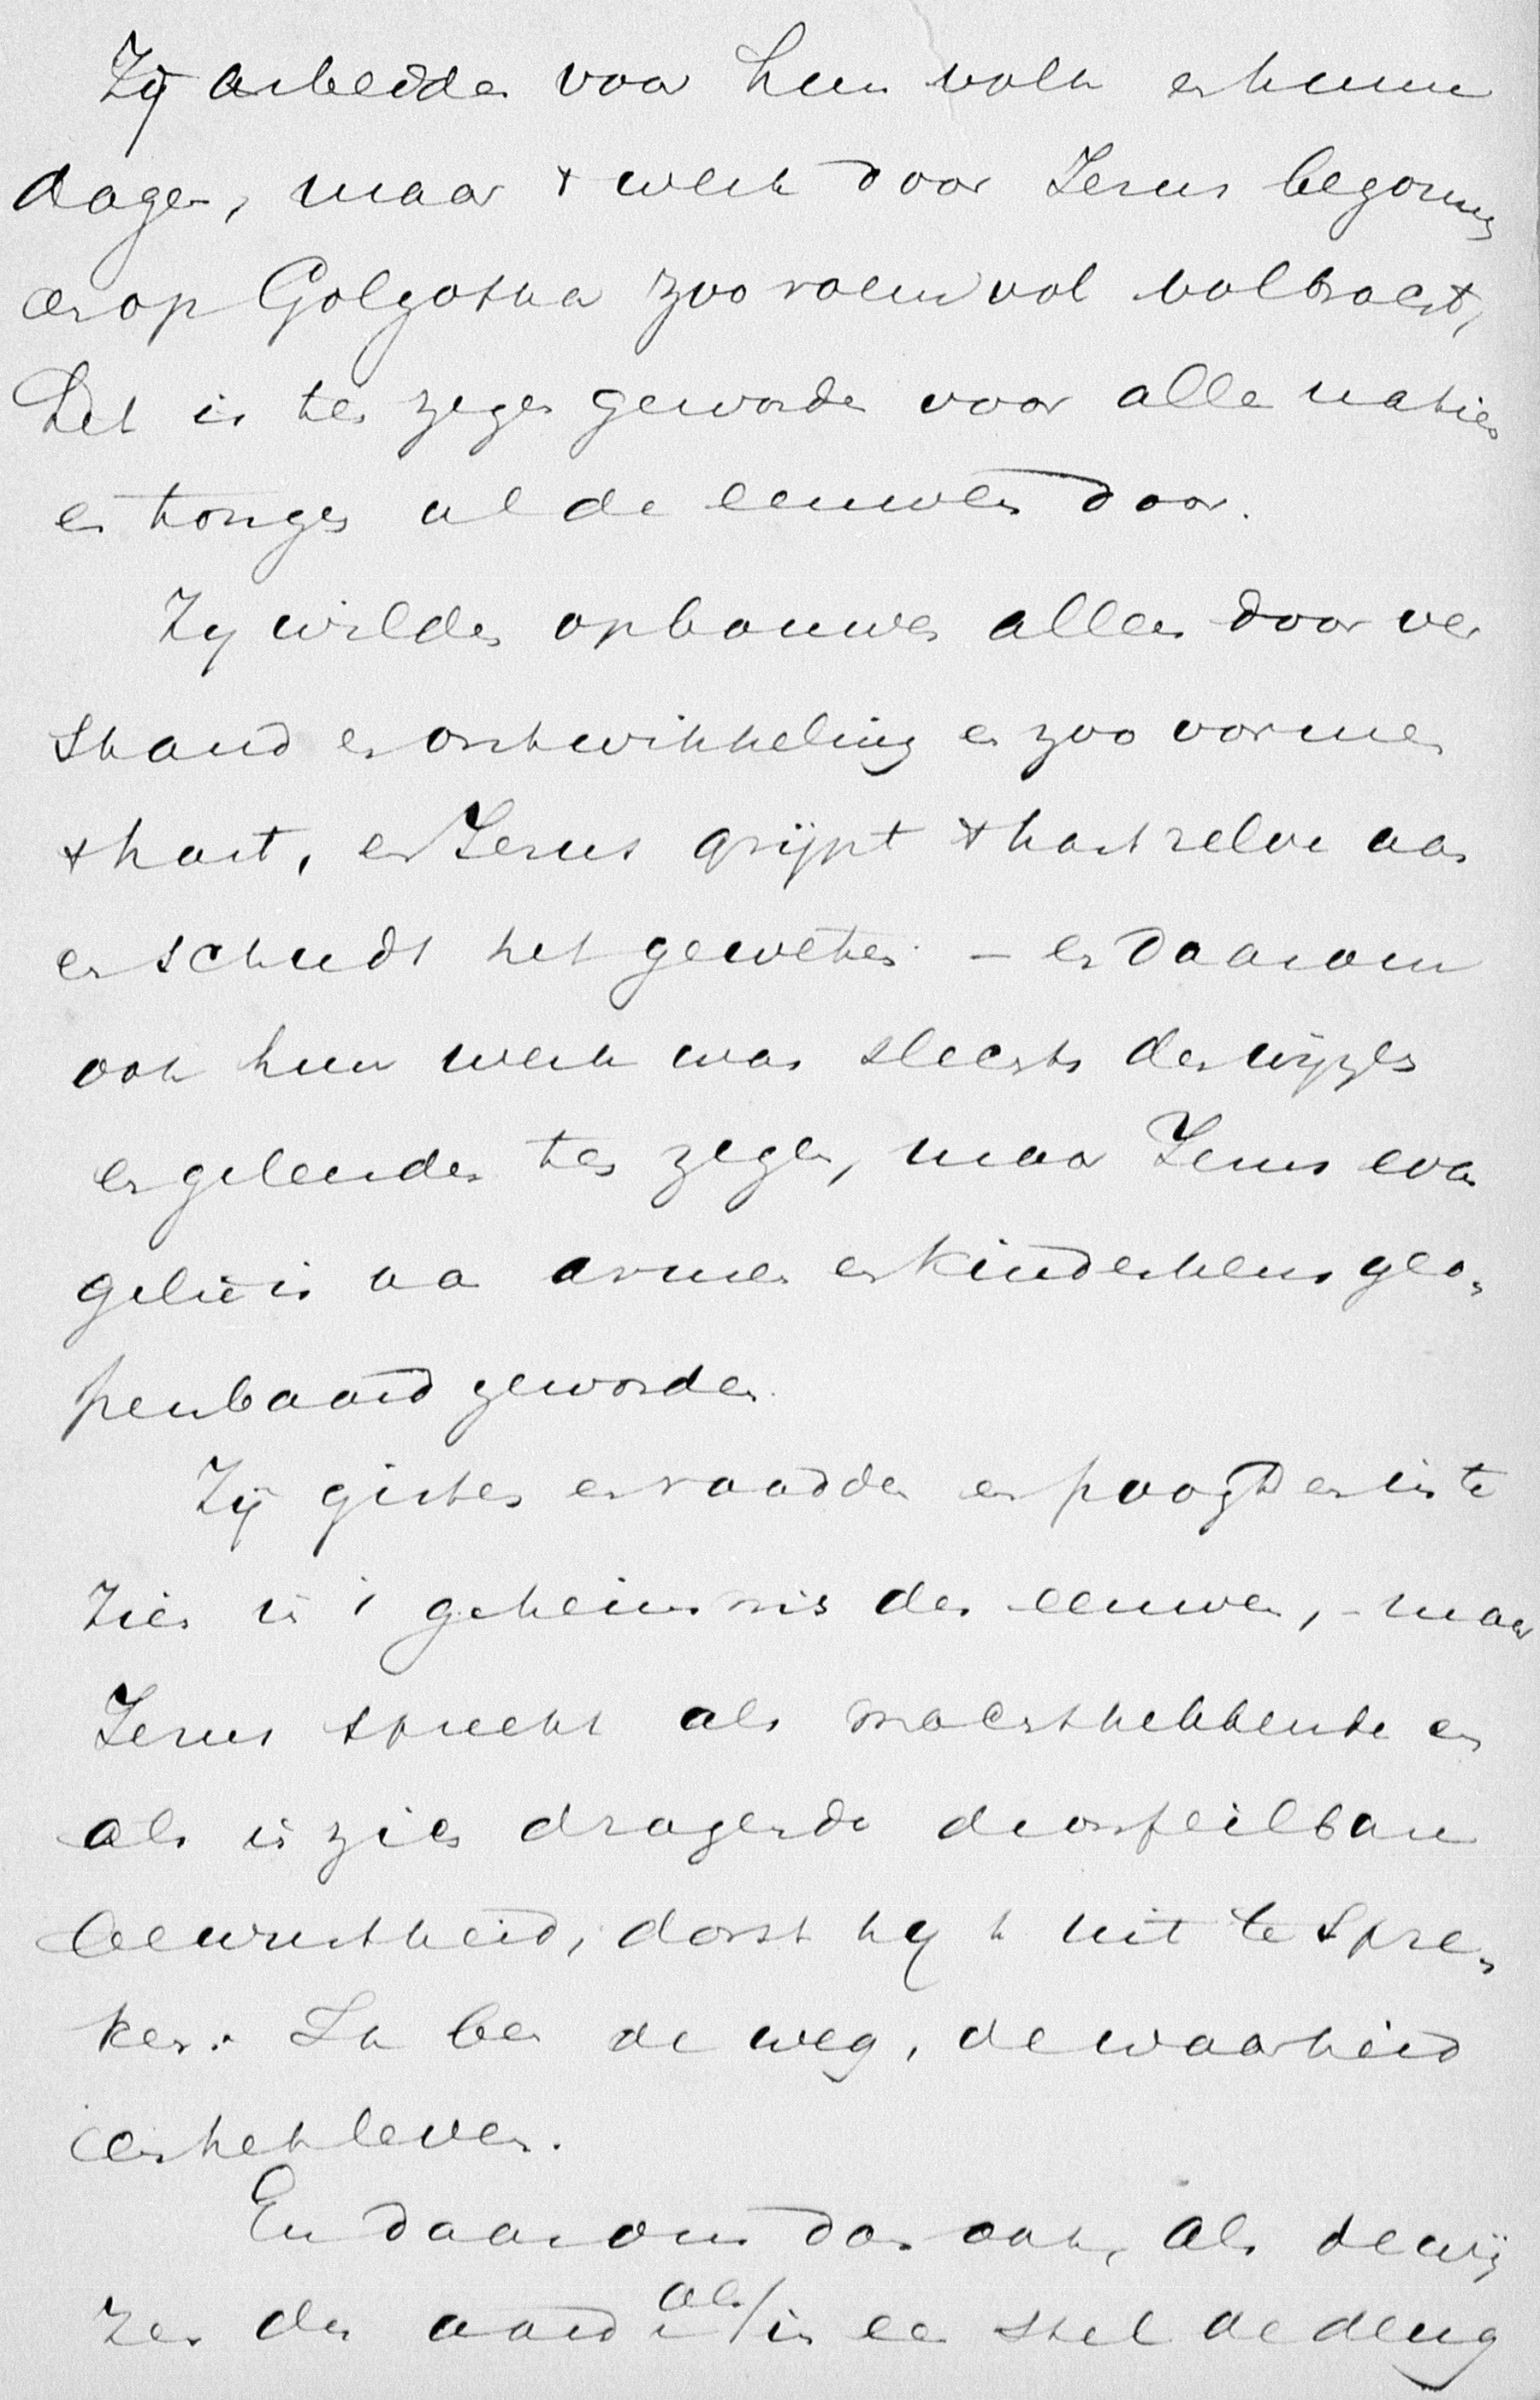 Zij arbeidden voor hun volk en hunne
dagen, maar 't werk door Jesus begonnen
en op Golgotha zoo roemvol volbracht,
het is ten zegen geworden voor alle natien
en tongen al de eeuwen door.
Zij wilden opbouwen alleen door ver
stand en ontwikkeling en zoo vormen
't hart, en Jesus grijpt 't hart zelve aan
en schudt het geweten – en daarom
ook hun werk was slechts den wijzen
en geleerden ten zegen, maar Jesus evan
gelie is aan armen en kinderkens geo-
penbaard geworden.
Zij gisten en raadden en poogden in te
zien in 't geheimnis der eeuwen, – maar
Jesus spreekt als machthebbende en
als in zich dragende de onfeilbare
bewustheid, dorst hij 't uit te spre-
ken: Ik ben de weg, de waarheid
en het leven.
En daarom dan ook, als de wij
zen der aard al in een stel de deug